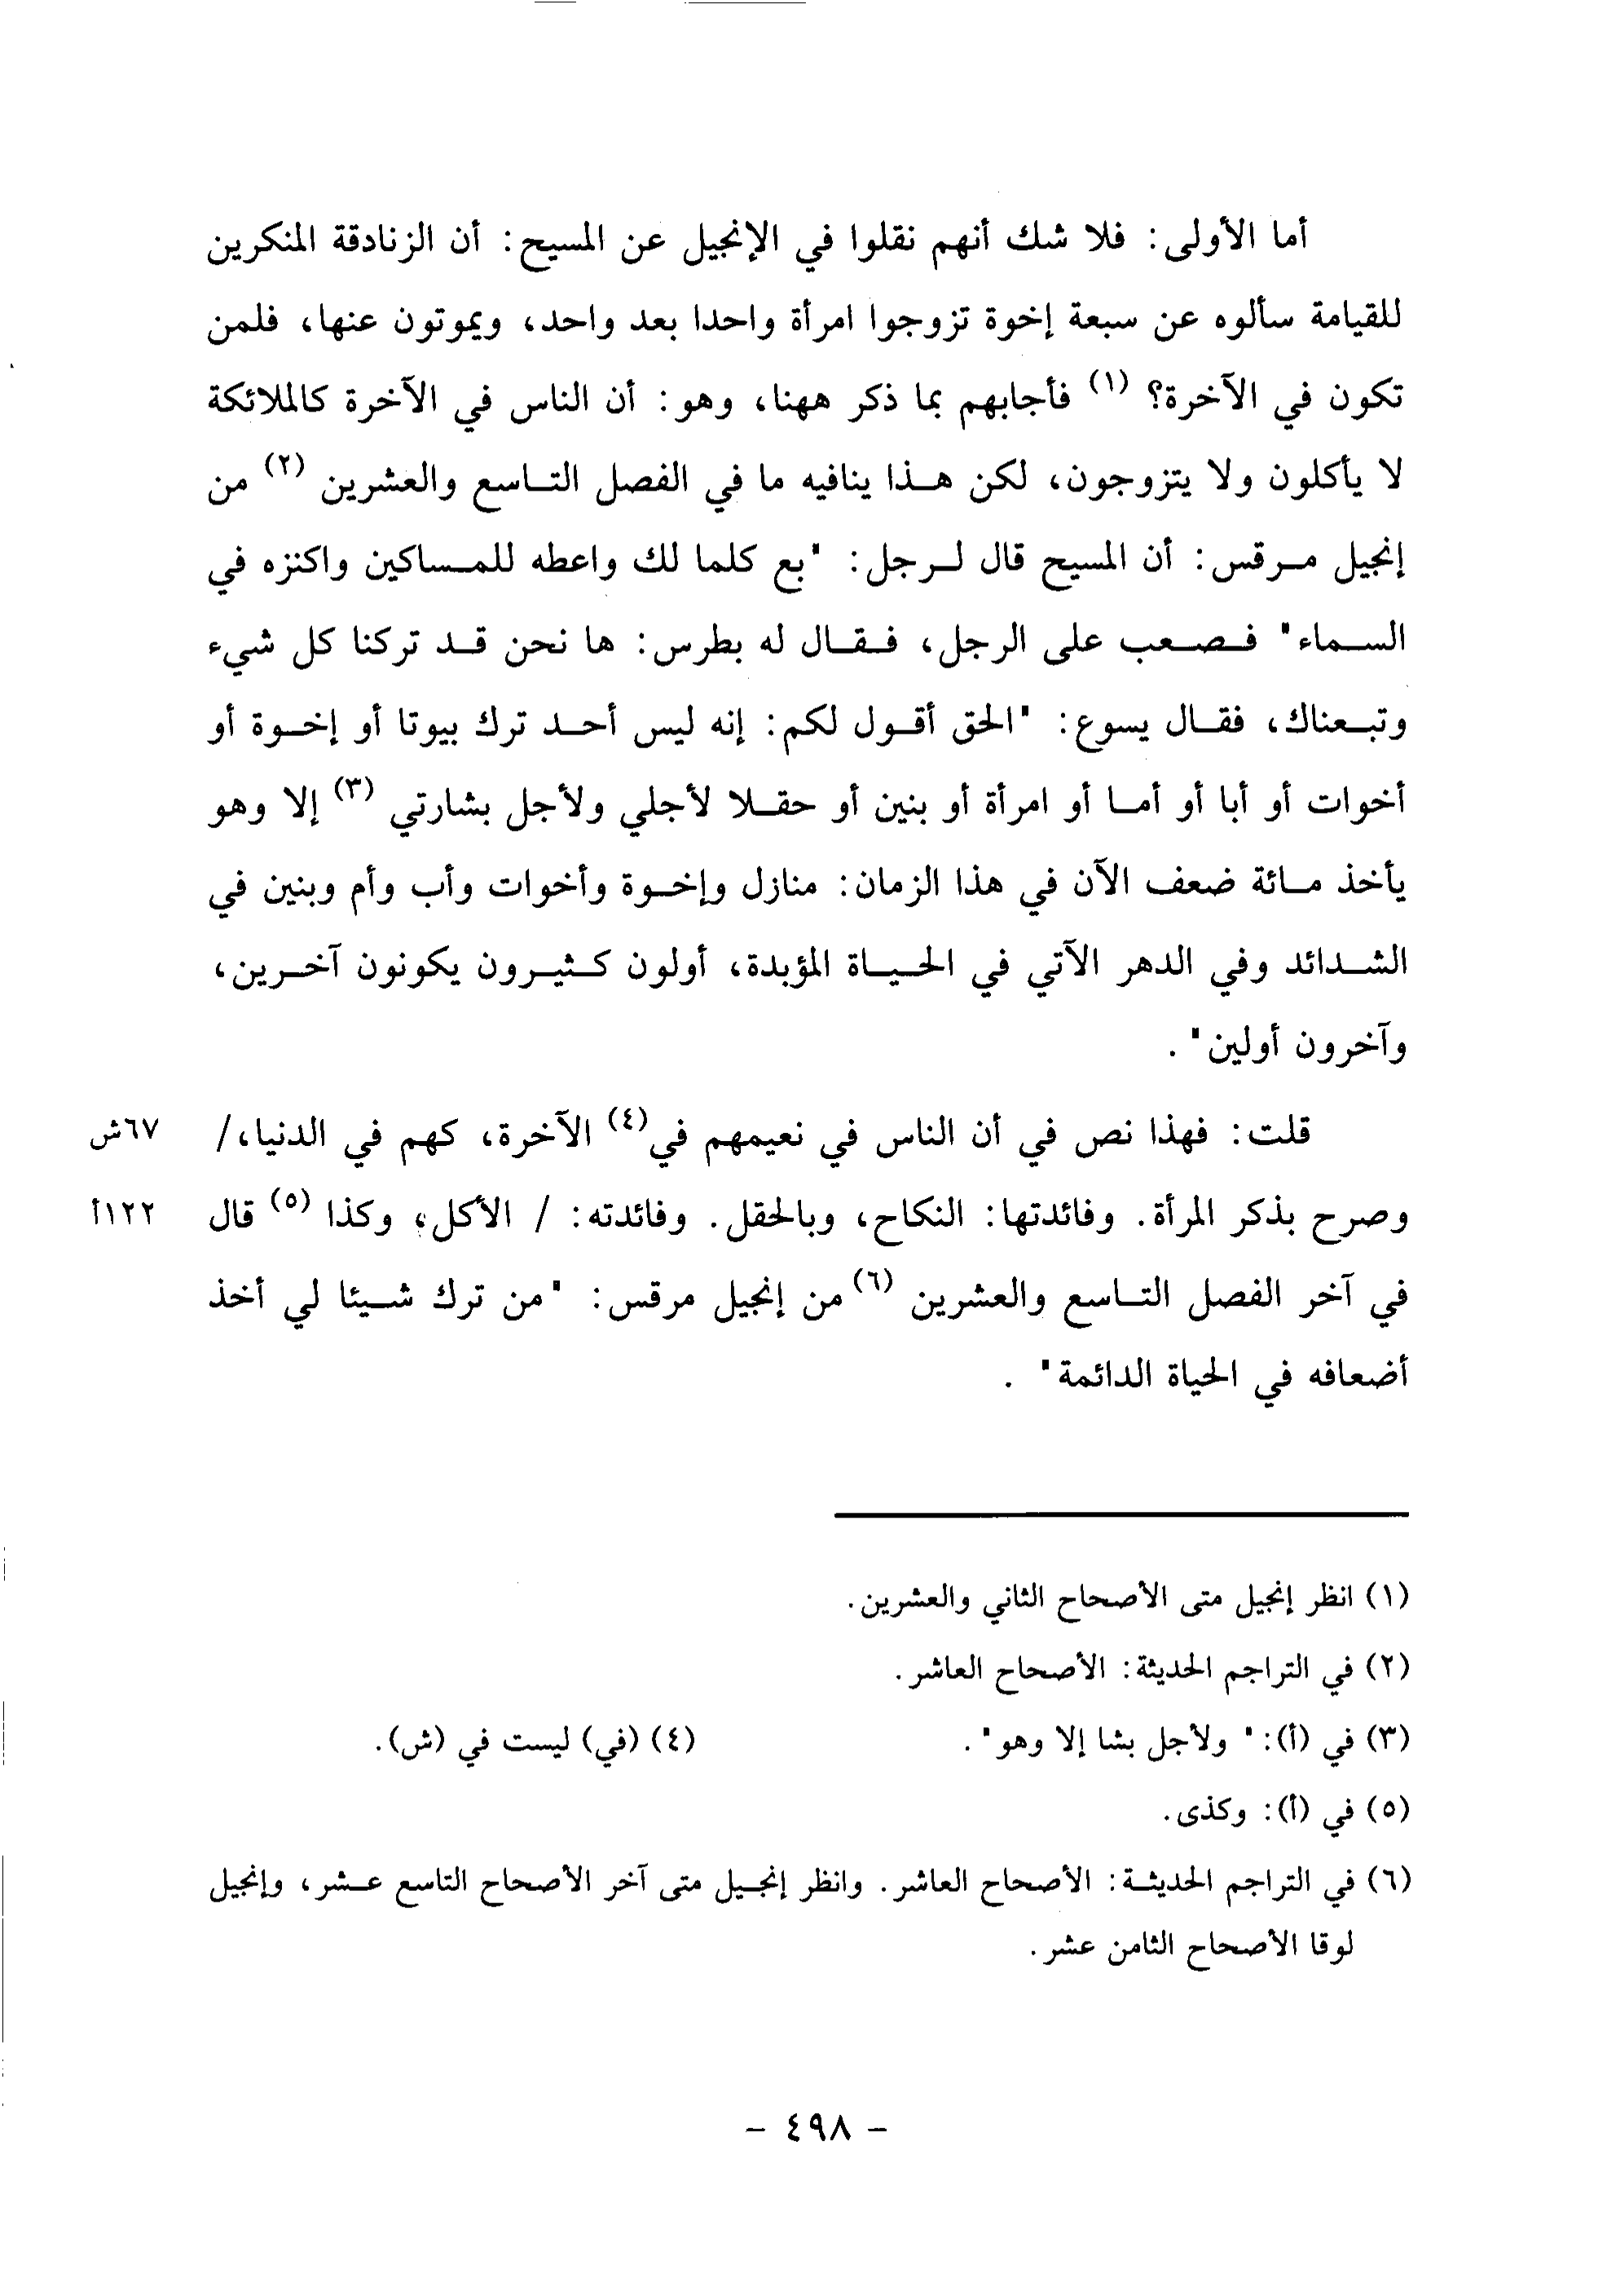 أما الأولى: فلا شك أنهم نقلوا في الإنجيل عن المسيح: أن الزنادقة المنكرين
للقيامة سألوه عن سبعة إخوة تزوجوا امرأة واحدا بعد واحد، ويموتون عنها، فلمن
تكون في الآخرة؟ (١) فأجابهم بما ذكر ههنا، وهو: أن الناس في الآخرة كالملائكة
لا يأكلون ولا يتزوجون، لكن هذا ينافيه ما في الفصل التاسع والعشرين (٢) من
إنجيل مرقس: أن المسيح قال لرجل: "بع كلما لك واعطه للمساكين واكنزه في
السماء" فصعب على الرجل، فقال له بطرس: ها نحن قد تركنا كل شيء
وتبعناك، فقال يسوع: "الحق أقول لكم: إنه ليس أحد ترك بيوتا أو إخوة أو
أخوات أو أبا أو أما أو امرأة أو بنين أو حقلا لأجلي ولأجل بشارتي (٣) إلا وهو
يأخذ مائة ضعف الآن في هذا الزمان: منازل وإخوة وأخوات وأب وأم وبنين في
الشدائد وفي الدهر الآتي في الحياة المؤبدة، أولون كثيرون يكونون آخرين،
وآخرون أولين".
قلت: فهذا نص في أن الناس في نعيمهم في(٤) الآخرة، كهم في الدنيا،/ ٦٧ش
وصرح بذكر المرأة. وفائدتها: النكاح، وبالحقل. وفائدته: / الأكل، وكذا (٥) قال ١٢٢أ
في آخر الفصل التاسع والعشرين (٦) من إنجيل مرقس: "من ترك شيئا لي أخذ
أضعافه في الحياة الدائمة" .
(١) انظر إنجيل متى الأصحاح الثاني والعشرين.
(٢) في التراجم الحديثة: الأصحاح العاشر.
(٣) في (أ): " ولأجل بشا إلا وهو". (٤) (في) ليست في (ش).
(٥) في (أ): وكذى.
(٦) في التراجم الحديثة: الأصحاح العاشر. وانظر إنجيل متى آخر الأصحاح التاسع عشر، وإنجيل
لوقا الأصحاح الثامن عشر.
- ٤٩٨ -